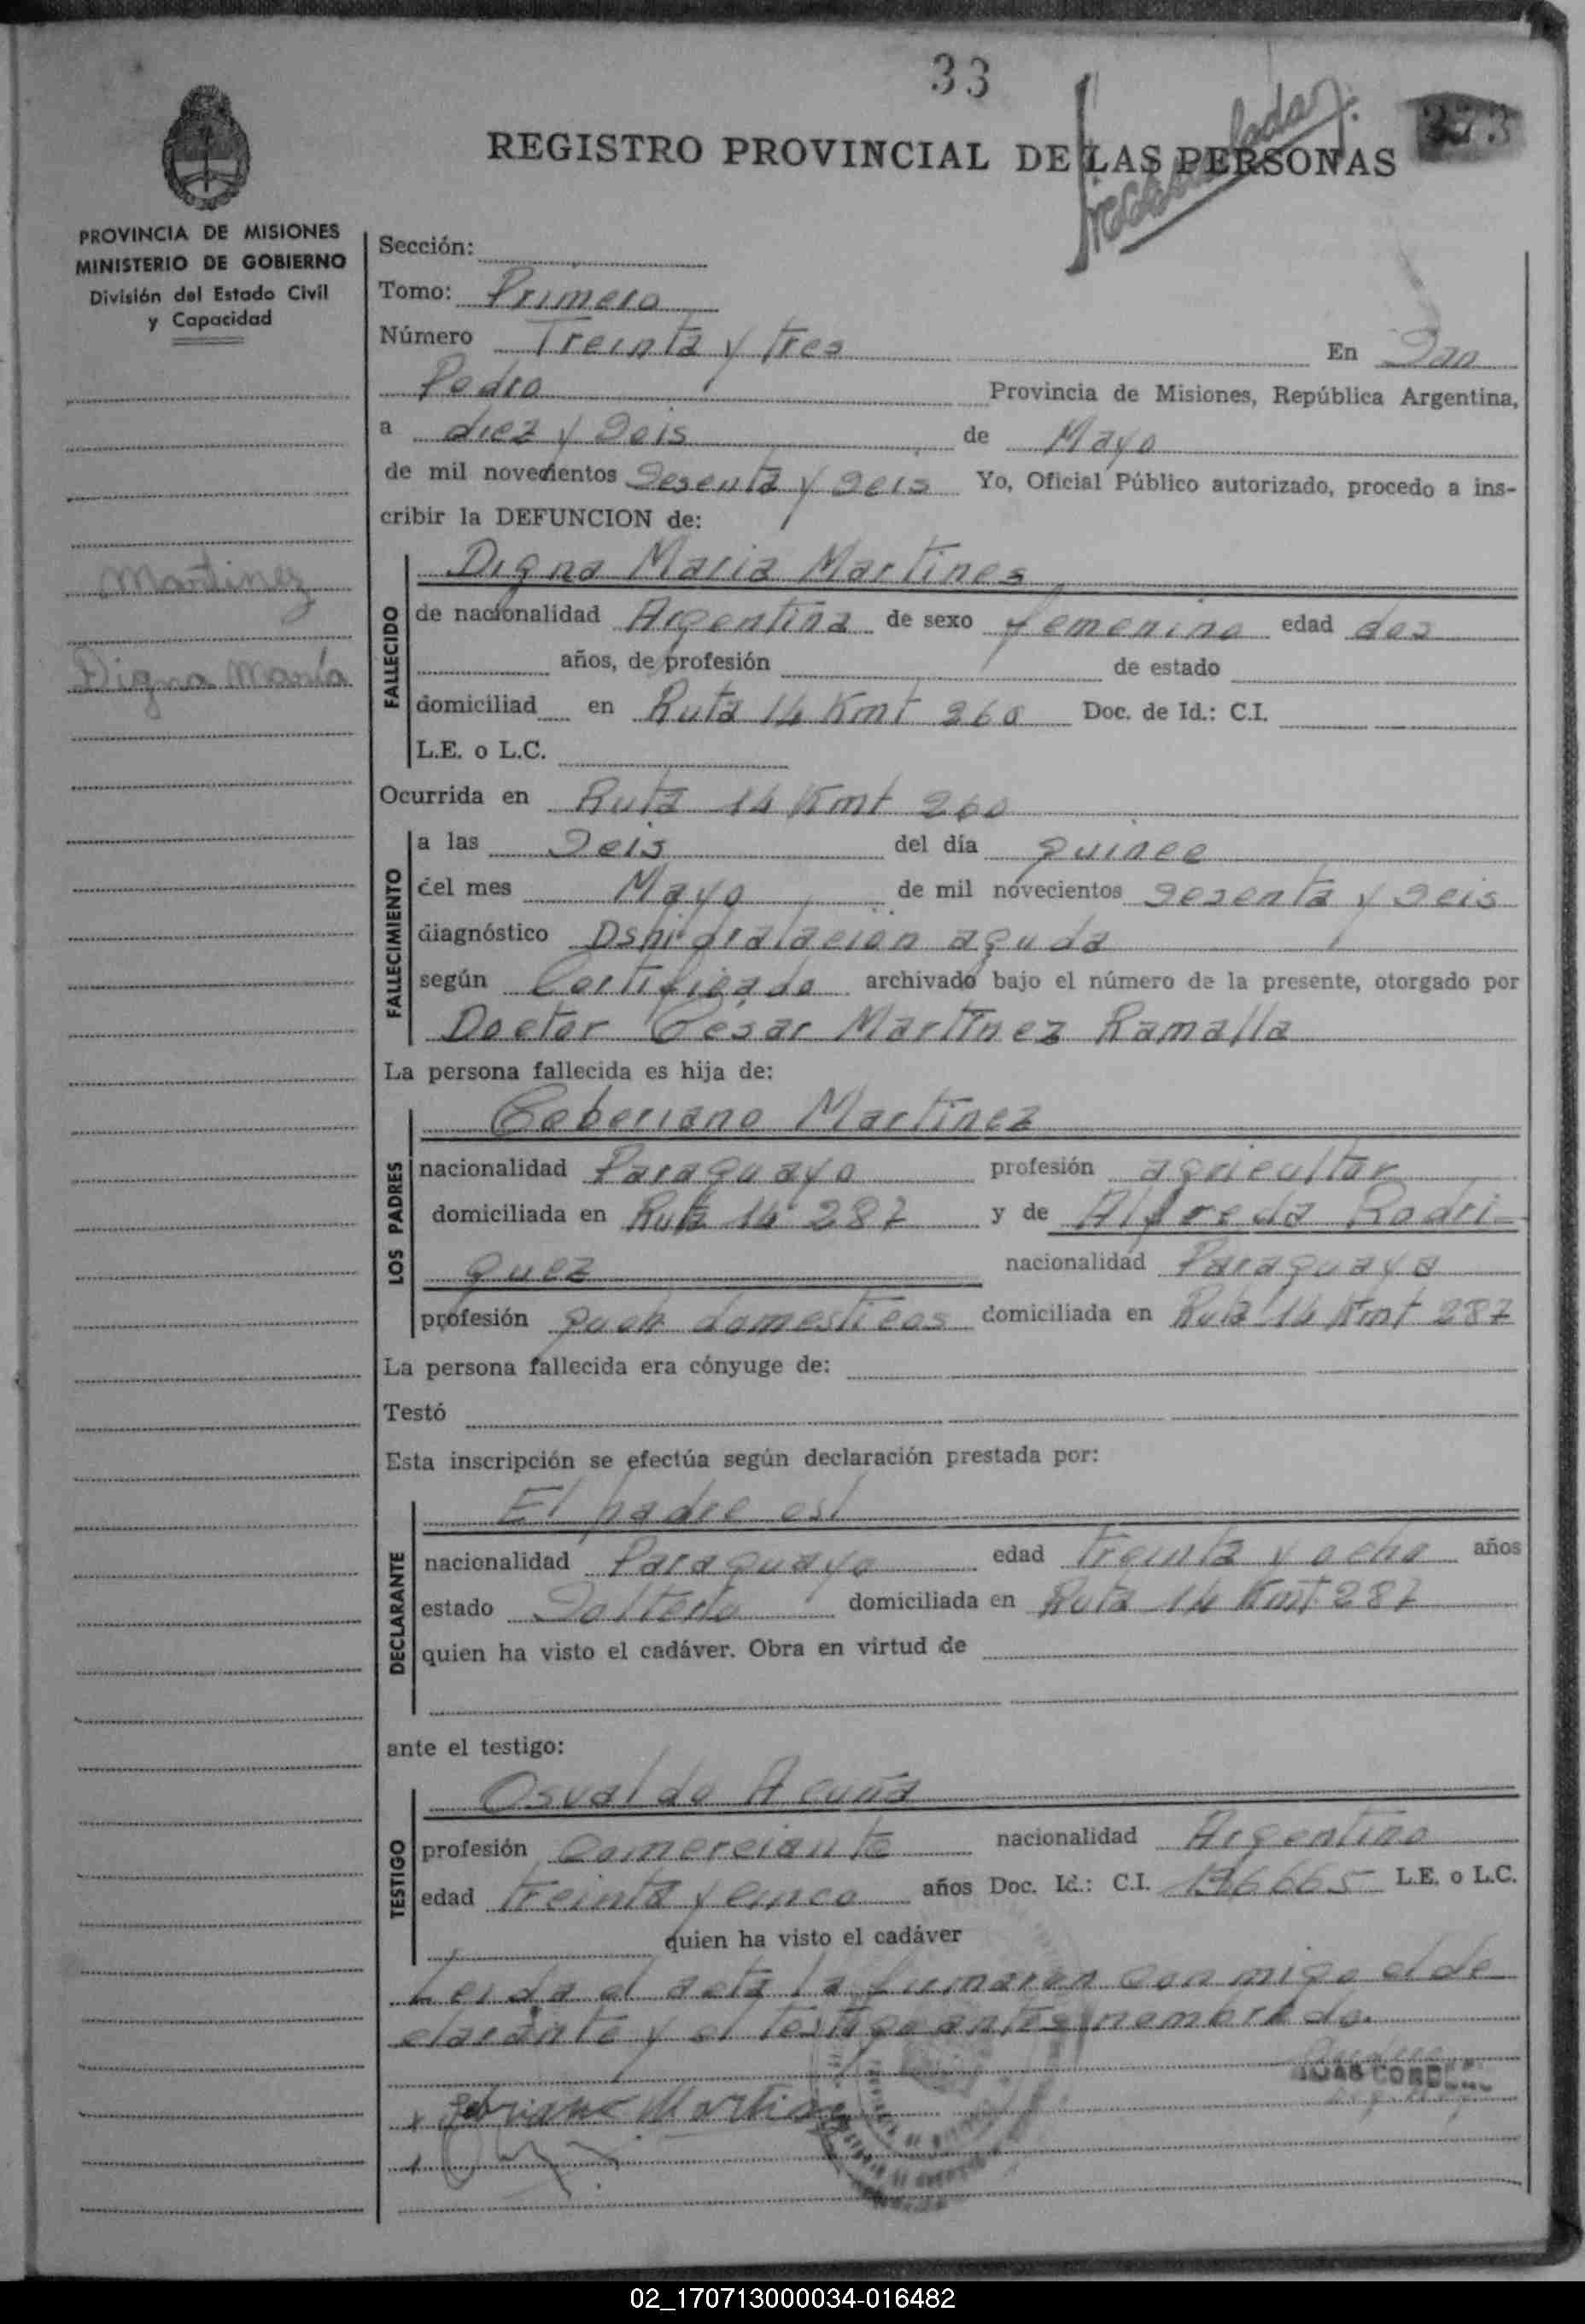 33
REGISTRO PROVINCIAL DE LAS PERSONAS
PROVINCIA DE MISIONES
MINISTERIO DE GOBIERNO
División del Estado Civil
y Capacidad
Martinez
Digna María
Sección:
Tomo: Primero
Número Treinta y tres En San
Pedro Provincia de Misiones, República Argentina,
a diez y Seis de Mayo
de mil novecientos Sesenta y seis Yo, Oficial Público autorizado, procedo a ins-
cribir la DEFUNCION de:
FALLECIDO
Digna Maria Martines
de nacionalidad Argentina de sexo femenino edad dos
años, de profesión de estado
domiciliad en Ruta 14 Kmt 260 Doc. de Id.: C.I.
L.E. o L.C.
Ocurrida en Ruta 14 Kmt 260
FALLECIMIENTO
a las Seis del día quince
del mes Mayo de mil novecientos sesenta y seis
diagnóstico aguda
según Certificado archivado bajo el número de la presente, otorgado por
Doctor Cesar Martinez Ramalla
La persona fallecida es hija de:
LOS PADRES
Ceberiano Martinez
nacionalidad Paraguayo profesión agricultor
domiciliada en Ruta 14 287 y de Alfreda Rodri-
guez nacionalidad Paraguaya
profesión domesticos domiciliada en Ruta 14 Kmt 287
La persona fallecida era cónyuge de:
Testó
Esta inscripción se efectúa según declaración prestada por:
DECLARANTE
El padre
nacionalidad Paraguayo edad treinta y ocho años
estado Soltero domiciliada en Ruta 14 Kmt 287
quien ha visto el cadáver. Obra en virtud de
ante el testigo:
TESTIGO
Osvaldo Acuña
profesión Comerciante nacionalidad Argentino
edad treinta y cinco años Doc. Id.: C.I. 196665 L.E. o L.C.
quien ha visto el cadáver
Leida el acta la firmaron con migo el de
clarante y el testigo antes nombrado.
Martinez
02_170713000034-016482